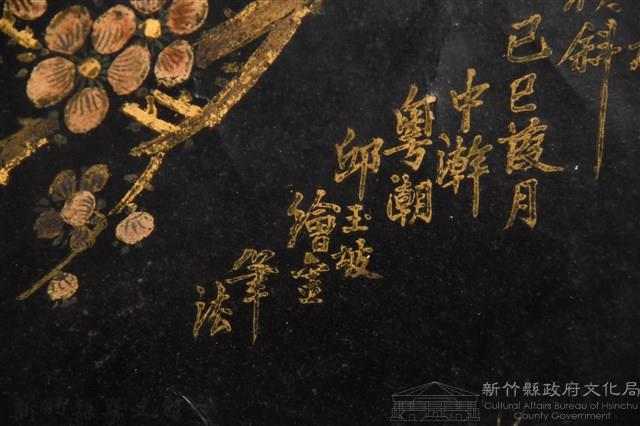 斜
己巳葭月
中澣
粵潮
邱玉坡
繪金
筆
法
新竹縣政府文化局
Cultural Affairs Bureau of Hsinchu
County Government